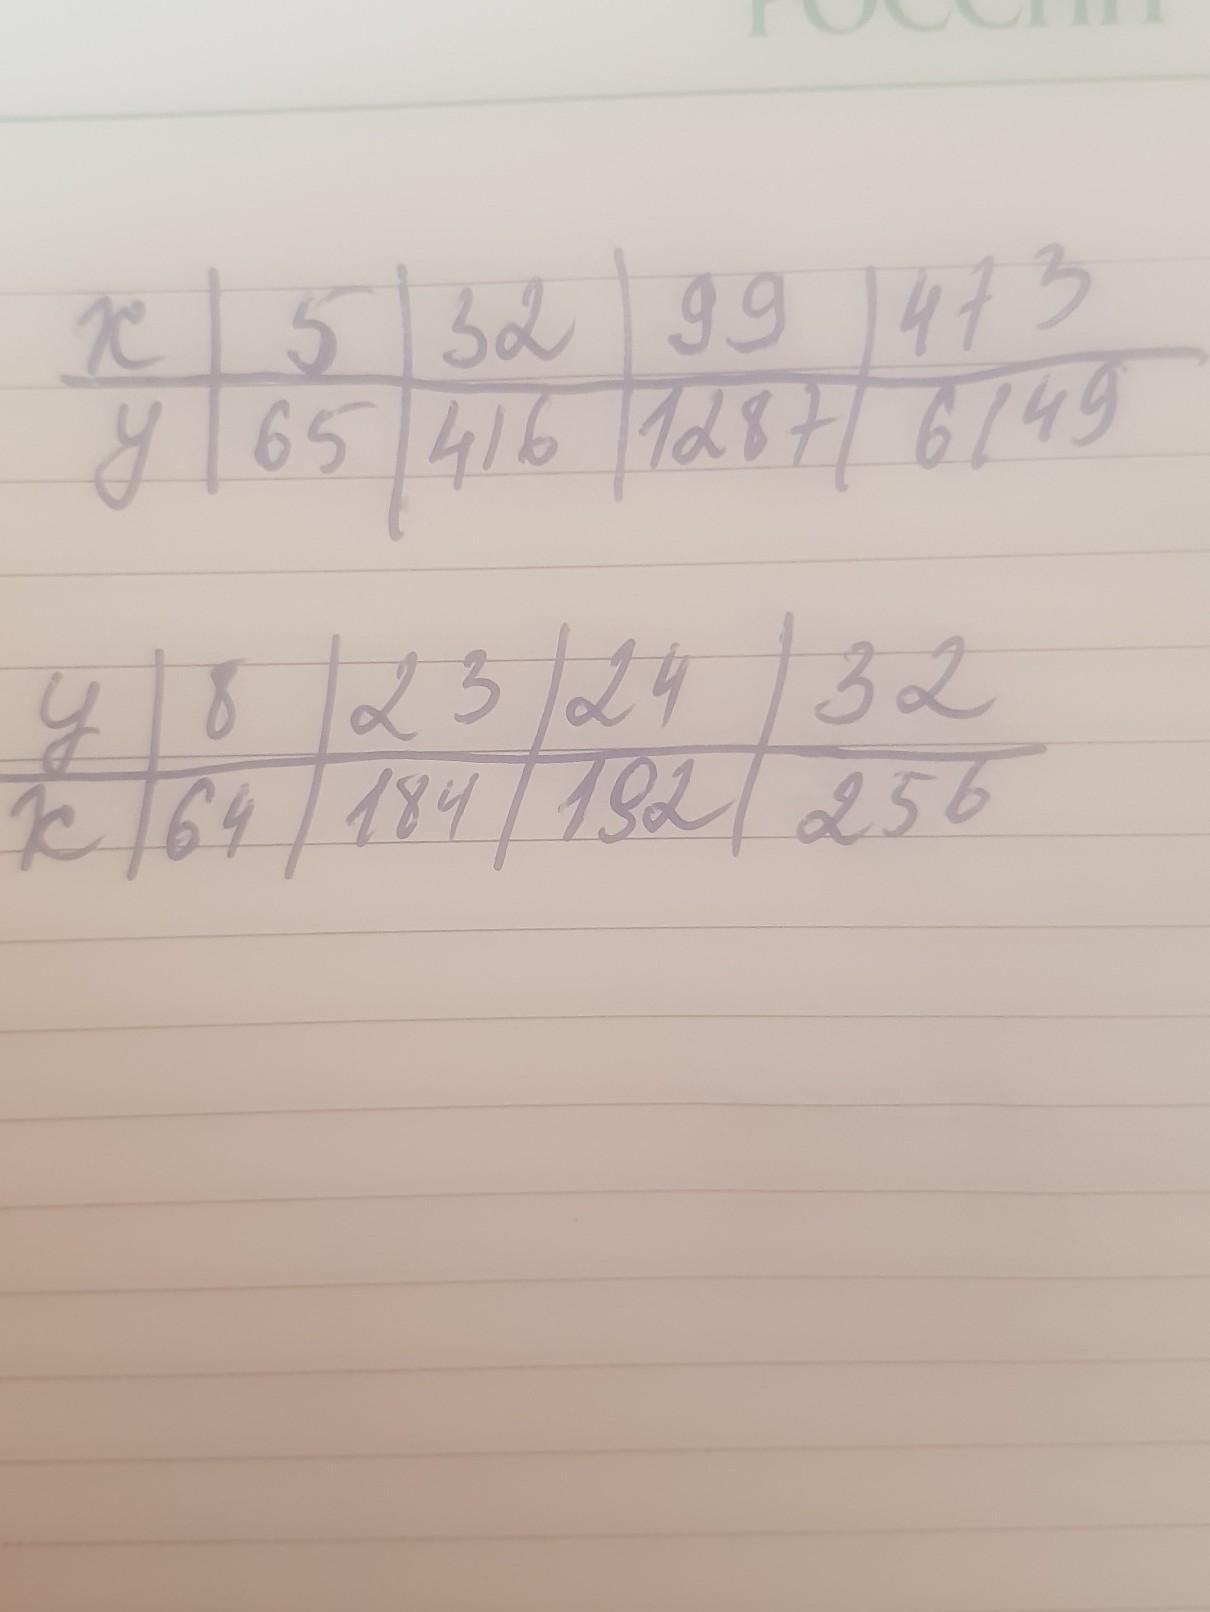 РОССИИ
x | 5 | 32 | 99 | 473
y | 65 | 416 | 1287 | 6149
y | 8 | 23 | 24 | 32
x | 64 | 184 | 192 | 256